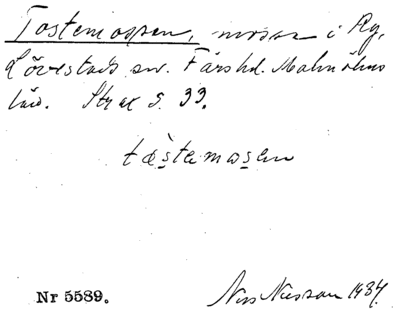 Tostemossen, mosse i Ry,
Lövestads sn. Färs hd. Malmöhus
län. Str ax S. 33.
tòstemosen
Nr 5589.
Nils Nilsson 1934.